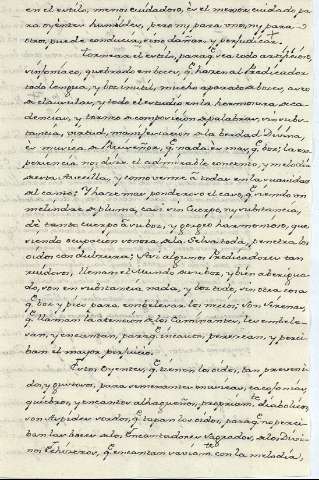 en el estilo, menos cuidadoso, es el menor cuidado pa
ra oyentes humildes, pero ni para unos, ni para
otros, puede conducir, sino dañar, y perjudicar.
Tornear el estilo, para q.e sea todo artificioso,
sinfonico, quebrado en voces, q.e hazen al Predicador
todo lengua, y voz inutil, mucho aparato de voces, aseo
de clausulas, y todo el estudio en la hermosura de ca-
dencias, y tornos de composicion de palabras, sin subs-
tancia, virtud, manifestacion de la verdad Divina,
es musica de Ruiseñor, q.e nada es mas, q.e voz; la ex-
periencia nos dize el admirable concento, y melodia
de esta Avecilla, y como vence á todas en la suavidad
del canto: Y haze mas ponderoso el caso, q.e siendo un
melindre de pluma, casi sin Cuerpo, ni substancia,
dé tanto cuerpo á su voz, y gorgeo harmonioso, que
siendo ocupacion sonora de la Selva toda, penetra los
oidos con dulzura: Assi algunos Predicadores tan
ruidosos, llenan el Mundo de su voz, y bien averigua-
do, son en substancia nada, y voz todo, sin otra cosa
q.e voz y pico para embelesar los necios: Son Sirenas,
q.e llaman la atencion de los Caminantes, los embele-
san, y encantan, para q.e incautos, perezcan, y perci-
ban el mayor perjuicio.
Estos Oyentes, q.e tienen los oidos, tan preveni-
dos, y gustosos, para semejantes musicas, cacofonias,
quiebros, y encantos alhagueños, propriam.te diabolicos,
son Aspides sordos, q.e tapan los oidos, para q.e no perci-
ban las voces de los Encantadores Sagrados, de los Divi-
nos Orféos, q.e encantan sabiam.te con la melodia,